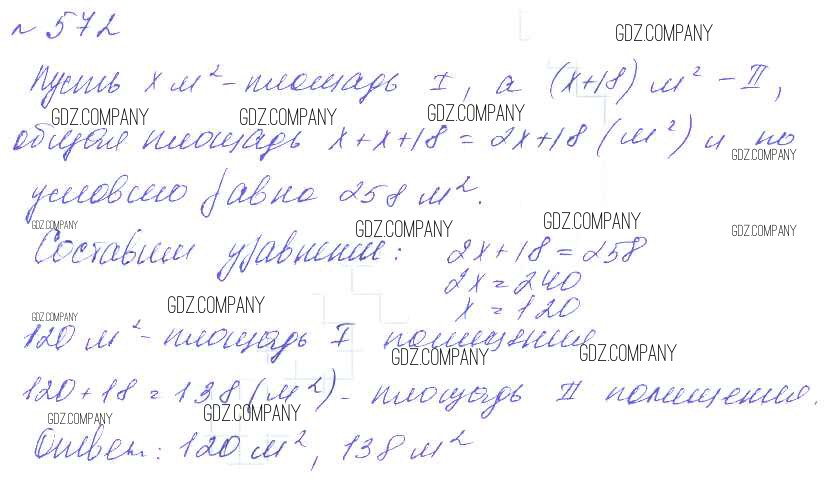 № 572
GDZ.COMPANY
Пусть x м² - площадь I, а (x+18) м² - II,
GDZ.COMPANY GDZ.COMPANY GDZ.COMPANY
общая площадь x+x+18 = 2x+18 (м²) и по
GDZ.COMPANY
условию равна 258 м².
GDZ.COMPANY GDZ.COMPANY GDZ.COMPANY GDZ.COMPANY
Составим уравнение: 2x+18=258
2x=240
GDZ.COMPANY x=120
GDZ.COMPANY
120 м² - площадь I помещения
GDZ.COMPANY GDZ.COMPANY
120+18=138 (м²) - площадь II помещения.
GDZ.COMPANY GDZ.COMPANY
Ответ: 120 м², 138 м²